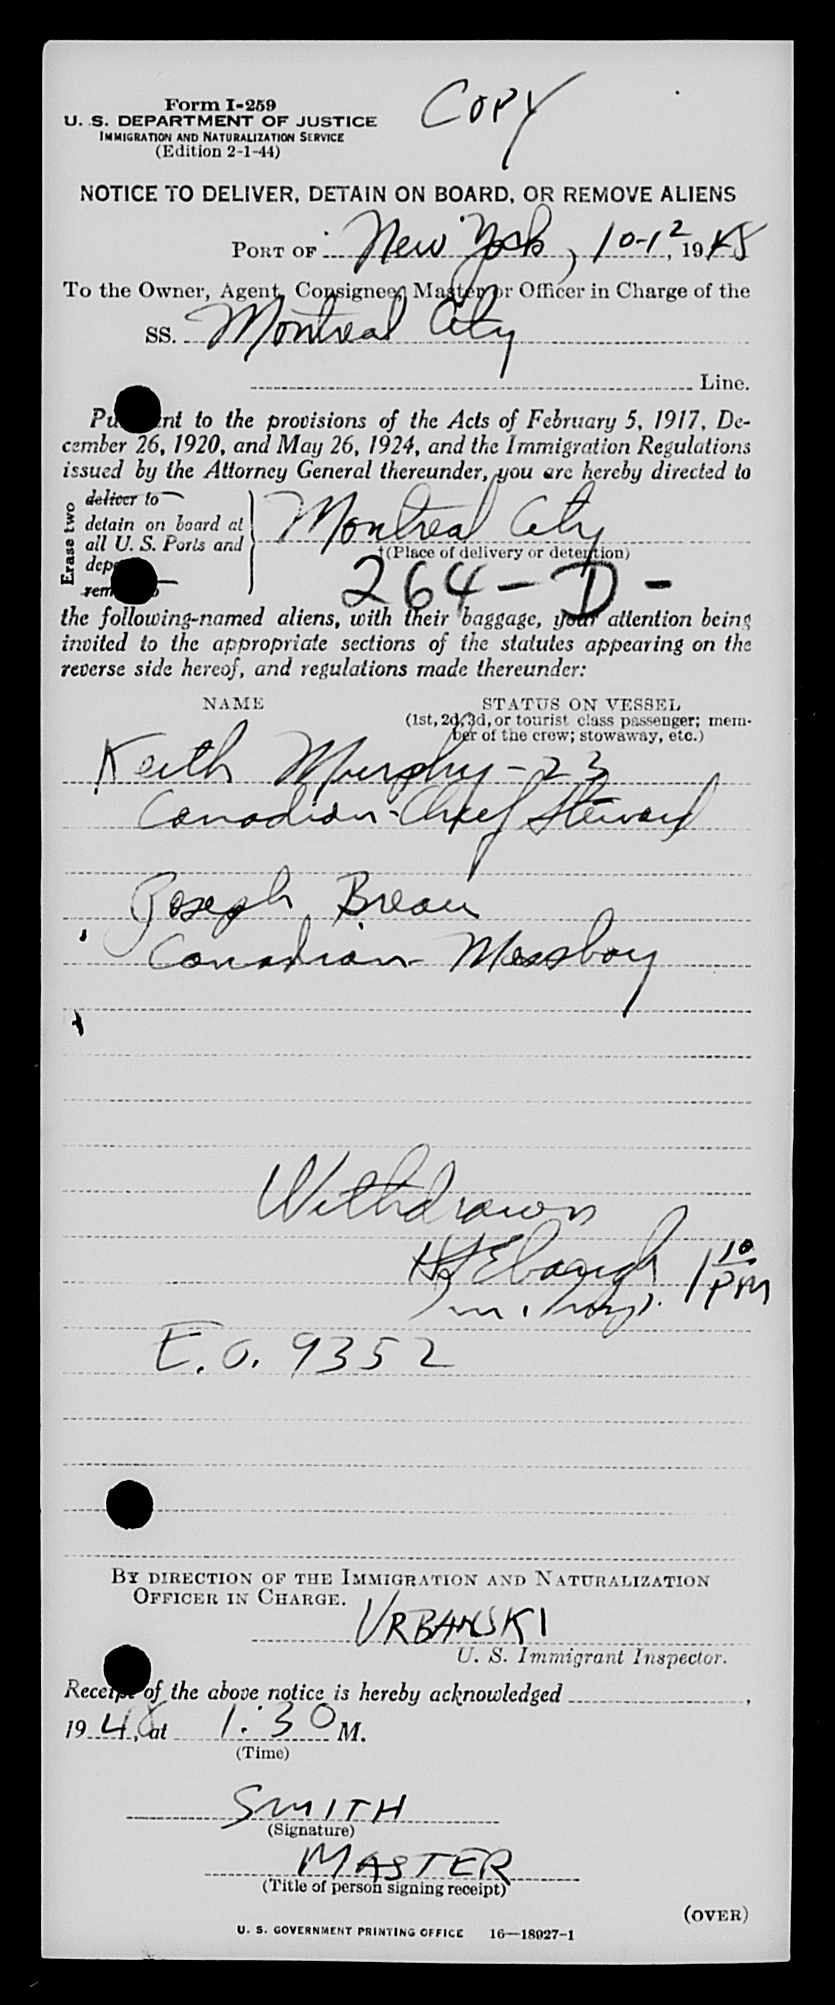 Form I-259
COPY
U. S. DEPARTMENT OF JUSTICE
IMMIGRATION AND NATURALIZATION SERVICE
(Edition 2-1-44)
NOTICE TO DELIVER, DETAIN ON BOARD, OR REMOVE ALIENS
PORT OF New York, 10-12, 1948
To the Owner, Agent, Consignee, Master or Officer in Charge of the
SS. Montreal City
Line.
Pursuant to the provisions of the Acts of February 5, 1917, De-
cember 26, 1920, and May 26, 1924, and the Immigration Regulations
issued by the Attorney General thereunder, you are hereby directed to
Erase two
deliver to
detain on board at
all U. S. Ports and
Montreal City
†(Place of delivery or detention)
264-D-
the following-named aliens, with their baggage, your attention being
invited to the appropriate sections of the statutes appearing on the
reverse side hereof, and regulations made thereunder:
NAME STATUS ON VESSEL
(1st, 2d, 3d, or tourist class passenger; mem-
ber of the crew; stowaway, etc.)
Keith Murphy - 23
Canadian - Chief Steward
Joseph Breau
Canadian - Messboy
Withdrawn
Ebaugh 1 10 PM
Im. Insp.
E.O. 9352
BY DIRECTION OF THE IMMIGRATION AND NATURALIZATION
OFFICER IN CHARGE.
URBANSKI
U. S. Immigrant Inspector.
Receipt of the above notice is hereby acknowledged ,
1948, at 1:30 M.
(Time)
SMITH
(Signature)
MASTER
(Title of person signing receipt)
(OVER)
U. S. GOVERNMENT PRINTING OFFICE 16—18927-1